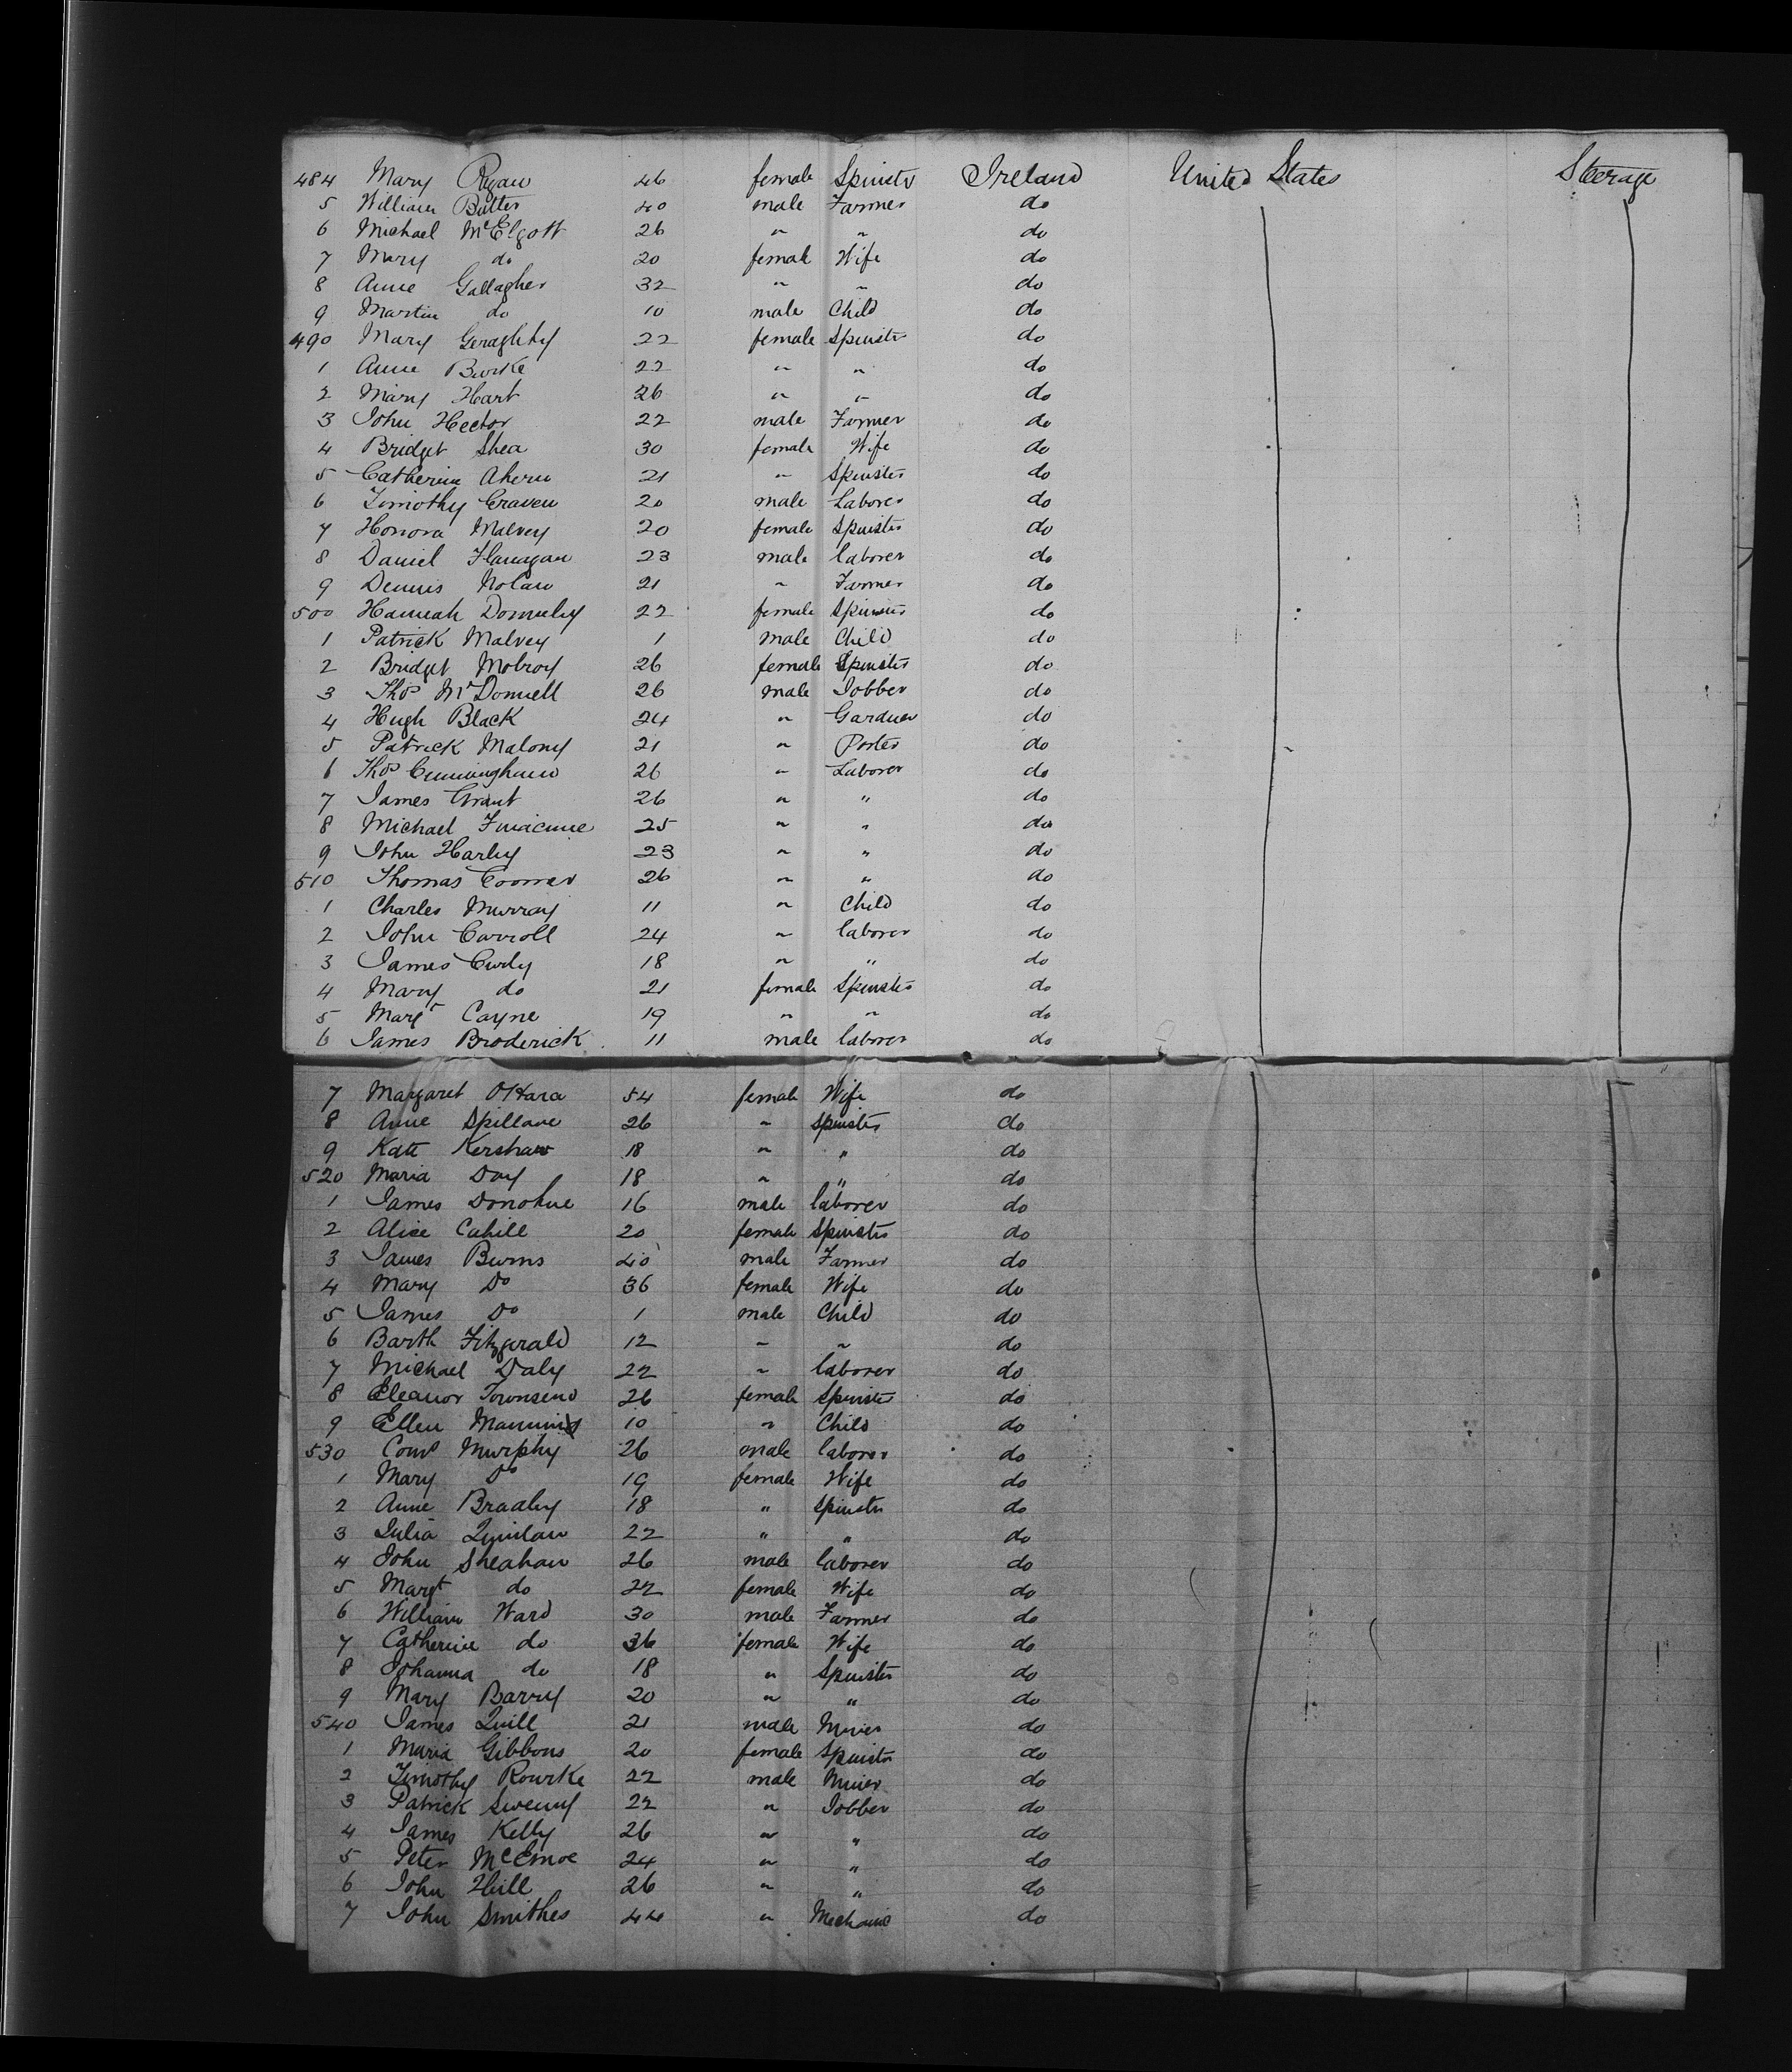 484 Mary Ryan 46 female Spinster Ireland United States Steerage
5 William Butter 40 male Farmer do
6 Michael McElgott 26 " " do
7 Mary do 20 female Wife do
8 Anne Gallagher 32 " " do
9 Martin do 10 male Child do
490 Mary Geraghty 22 female Spinster do
1 Anne Burke 22 " " do
2 Mary Hart 26 " " do
3 John Hector 22 male Farmer do
4 Bridget Shea 30 female Wife do
5 Catherine Ahern 21 " Spinster do
6 Timothy Craven 20 male Laborer do
7 Honora Malvey 20 female Spinster do
8 Daniel Flanagan 23 male laborer do
9 Dennis Nolan 21 " Farmer do
500 Hannah Donnelly 22 female Spinster do
1 Patrick Malvey 1 male Child do
2 Bridget Molroy 26 female Spinster do
3 Thos McDonnell 26 male Jobber do
4 Hugh Black 24 " Gardner do
5 Patrick Malony 21 " Porter do
6 Thos Cunningham 26 " Laborer do
7 James Grant 26 " " do
8 Michael 25 " " do
9 John Harley 23 " " do
510 Thomas Connor 26 " " do
1 Charles Murray 11 " Child do
2 John Carroll 24 " laborer do
3 James Curly 18 " " do
4 Mary do 21 female Spinster do
5 Margt Cayne 19 " " do
6 James Broderick 11 male laborer do
7 Margaret OHara 54 female Wife do
8 Anne Spillane 26 " Spinster do
9 Kate Kershaw 18 " " do
520 Maria Day 18 " " do
1 James Donohue 16 male laborer do
2 Alice Cahill 20 female Spinster do
3 James Burns 40 male Farmer do
4 Mary Do 36 female Wife do
5 James Do 1 male Child do
6 Barth Fitzgerald 12 " " do
7 Michael Daly 22 " laborer do
8 Eleanor Townsend 26 female Spinster do
9 Ellen Manning 10 " Child do
530 Corns Murphy 26 male laborer do
1 Mary Do 19 female Wife do
2 Anne Bradley 18 " Spinster do
3 Julia Quinlan 22 " " do
4 John Sheahan 26 male laborer do
5 Margt do 22 female Wife do
6 William Ward 30 male Farmer do
7 Catherine do 36 female Wife do
8 Johanna do 18 " Spinster do
9 Mary Barry 20 " " do
540 James Quill 21 male Miner do
1 Maria Gibbons 20 female Spinster do
2 Timothy Rourke 22 male Miner do
3 Patrick Sweeny 22 " Jobber do
4 James Kelly 26 " " do
5 Peter McEnroe 24 " " do
6 John Hill 26 " " do
7 John Smithes 44 " Mechanic do